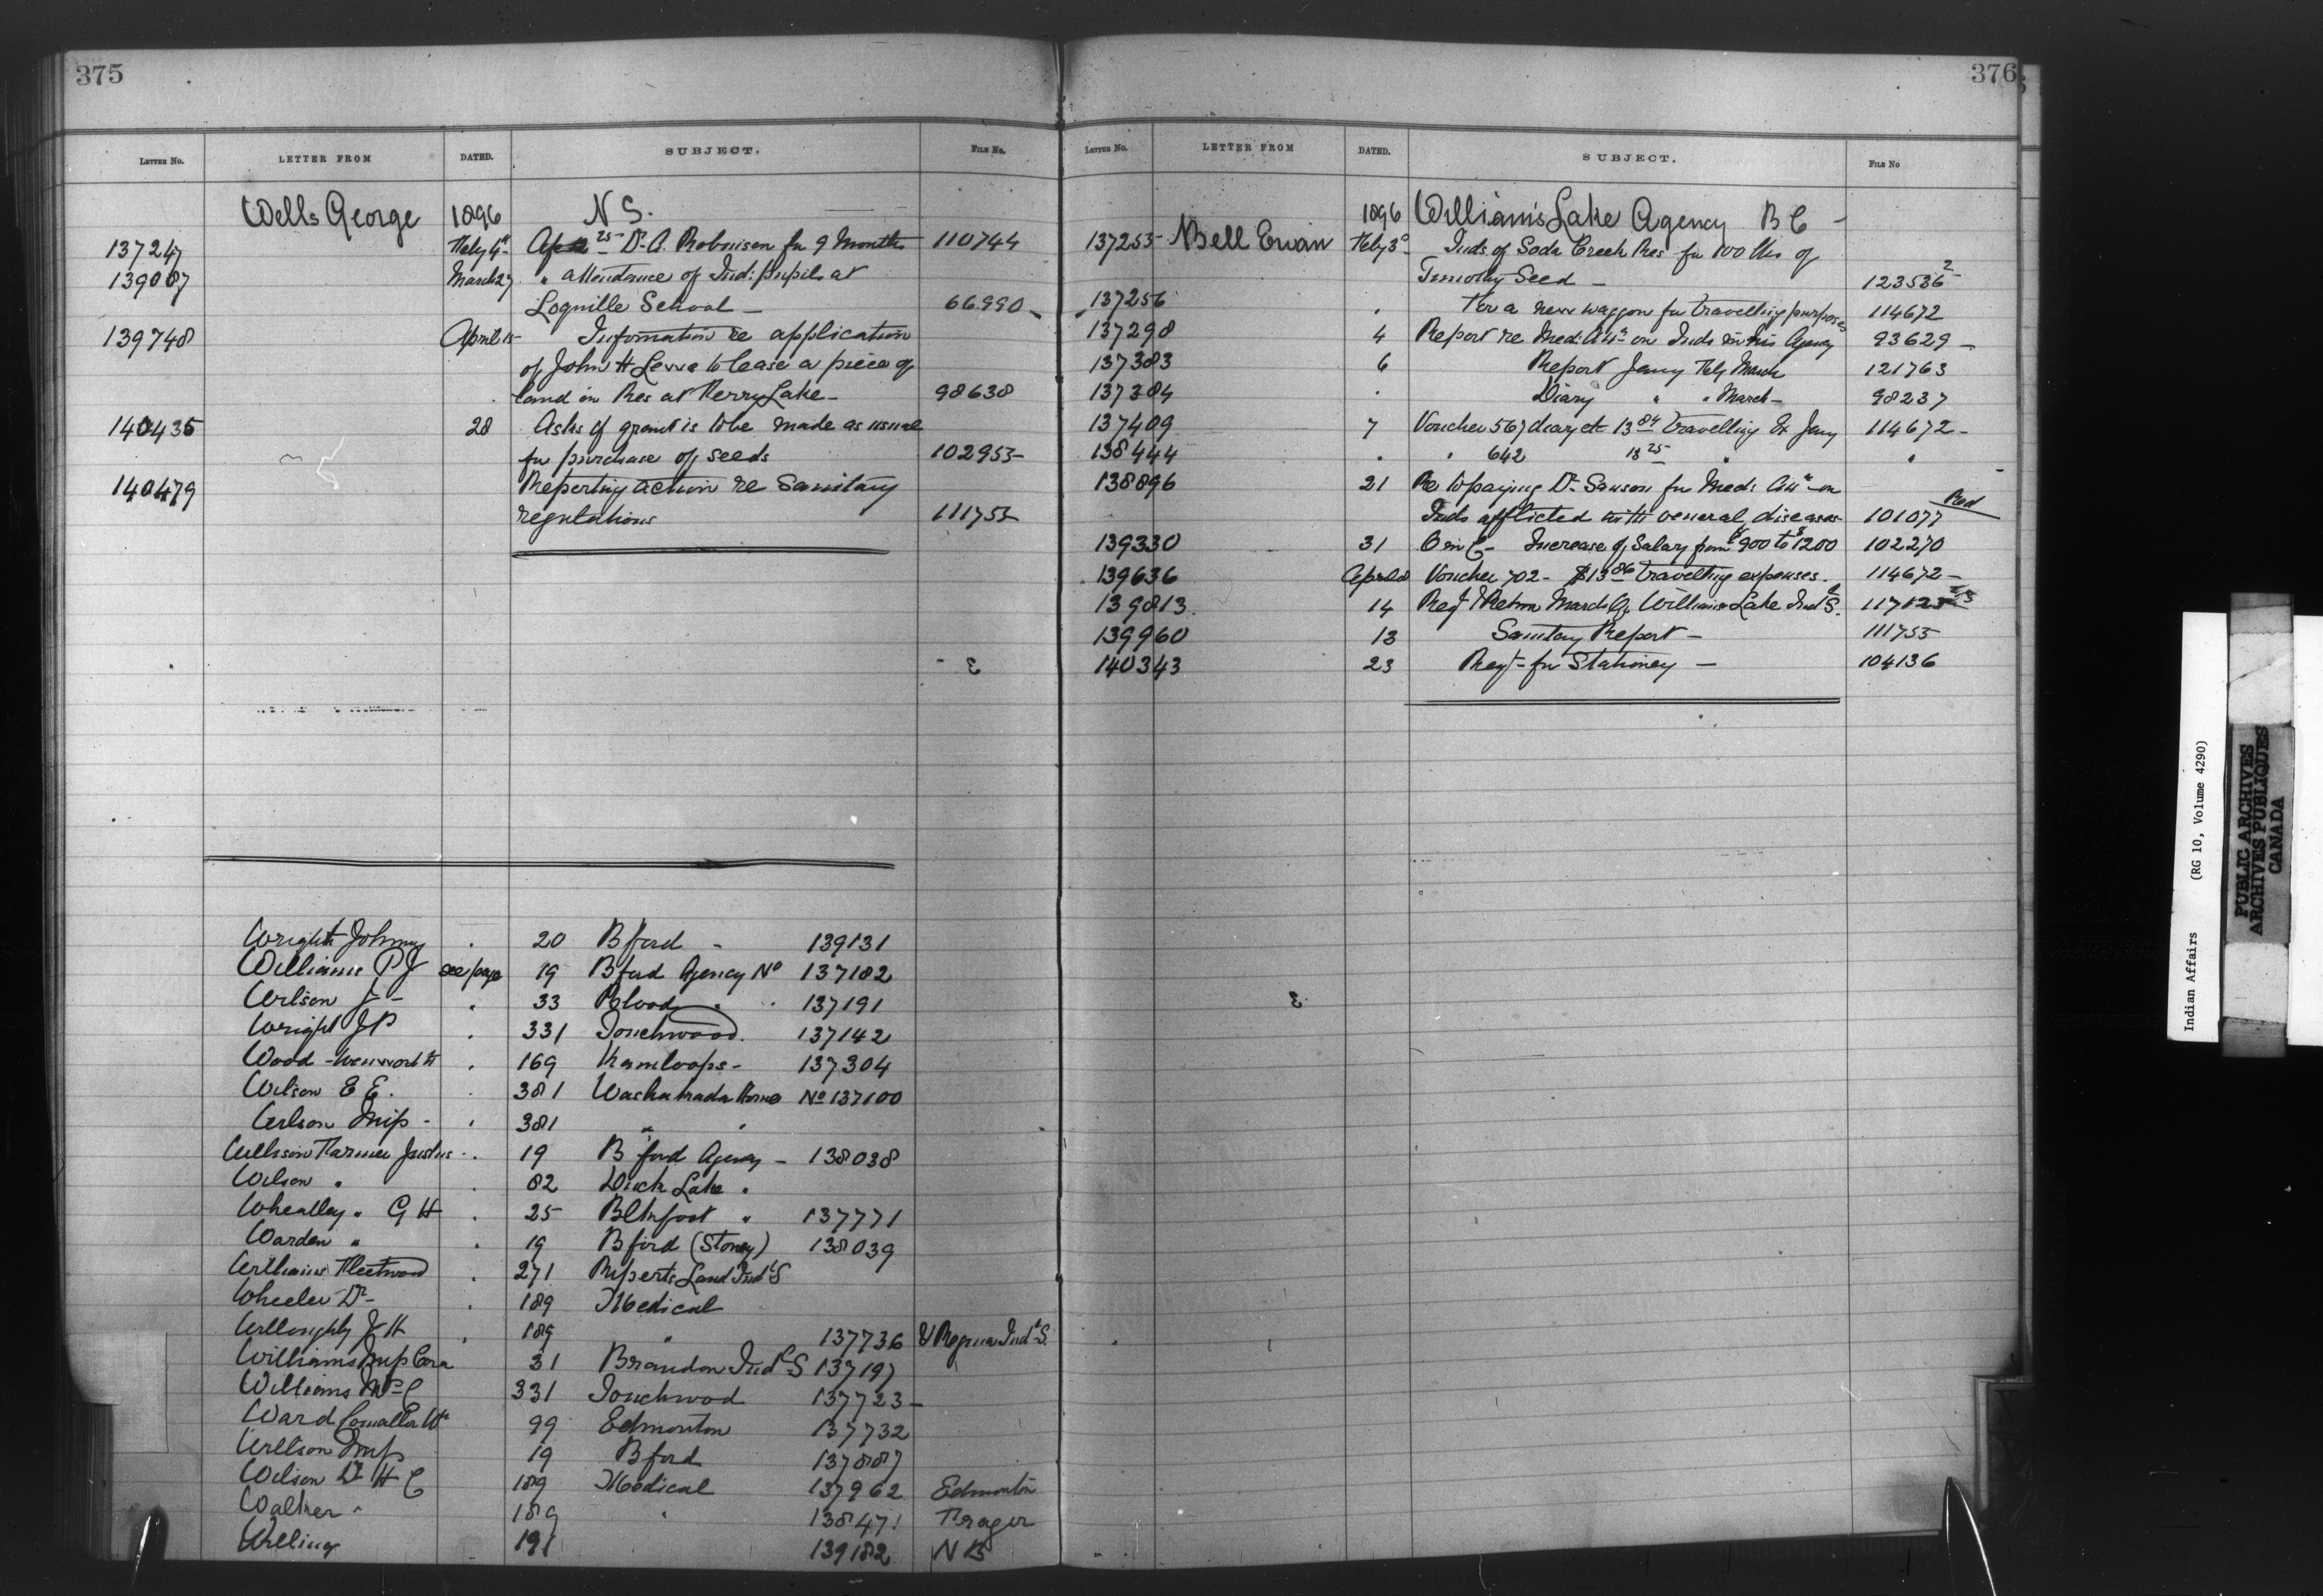 375
LETTER NO. LETTER FROM DATED. SUBJECT. FILE No.
Wells George 1896 N S.
137247 Feby 4th $25 Dr A. Robinson for 9 Months 110744
139007 March 27 " attendance of Ind: pupils at
School — 66.990
139748 April 15 Information re application
of John H to lease a piece of
land in Res at Ferry Lake — 98638
140435 28 Asks if grant is to be made as usual
for purchase of seeds 102953
140479 Reporting action re Sanitary
regulations 111755
Wright Johnny . 20 Bford - 139131
Williams P J see page 19 Bford Agency No 137182
Wilson J - . 33 Blood . 137191
Wright J P . 331 Touchwood. 137142
Wood - . 169 Kamloops - 137304
Wilson E E. . 381 Washakada Home No 137100
Wilson Insp - . 381 " "
Farmer Justus . 19 B'ford Agency - 138038
Wilson " . 82 Duck Lake "
Wheatley " G H . 25 Blkfoot " 137771
Warden " . 19 Bford (Stoney) 138039
Williams Fleetwood . 271 Ruperts Land Indl S
Wheeler Dr - . 189 Medical
Willoughby J H . 189 " 137736 & Regina Indl S.
Williams Cora 31 Brandon Indl S 137197
Williams Wm C 331 Touchwood 137723 -
Ward Wm 99 Edmonton 137732
19 Bford 137887
Wilson Dr H C 189 Medical 137962 Edmonton
189 " 138471 Fraser
Welling 191 139182 N B
376
LETTER NO. LETTER FROM DATED. SUBJECT. FILE NO
1896 Williams Lake Agency B C -
137255 Bell Ewan Feby 3d Inds of Soda Creek Res for 100 lbs of
Timothy Seed — 123536 2
137256 . For a new waggon for travelling purposes 114672
137298 4 Report re Med: Attn on Inds in his Agency 93629 -
137383 6 Report Jany Feby March 121763
137384 . Diary " " March - 98237
137409 7 Voucher 567 diary etc 13 84 travelling Ex Jany 114672 -
138444 . " 642 18 25 " "
138896 21 Re to paying Dr Sanson for Med: Attn on
Inds afflicted with veneral diseases 101077 Red
139330 31 O in C - Increase of Salary from $900 to $1200 102270
139636 April 8 Voucher 702 - $13 86 travelling expenses. 114672 -
139813 14 Reqt Return March Qr Williams Lake Indl S. 117125
139960 13 Sanitary Report - 111755
140343 23 Reqt for Stationery — 104136
Indian Affairs (RG 10, Volume 4290)
PUBLIC ARCHIVES
ARCHIVES PUBLIQUES
CANADA